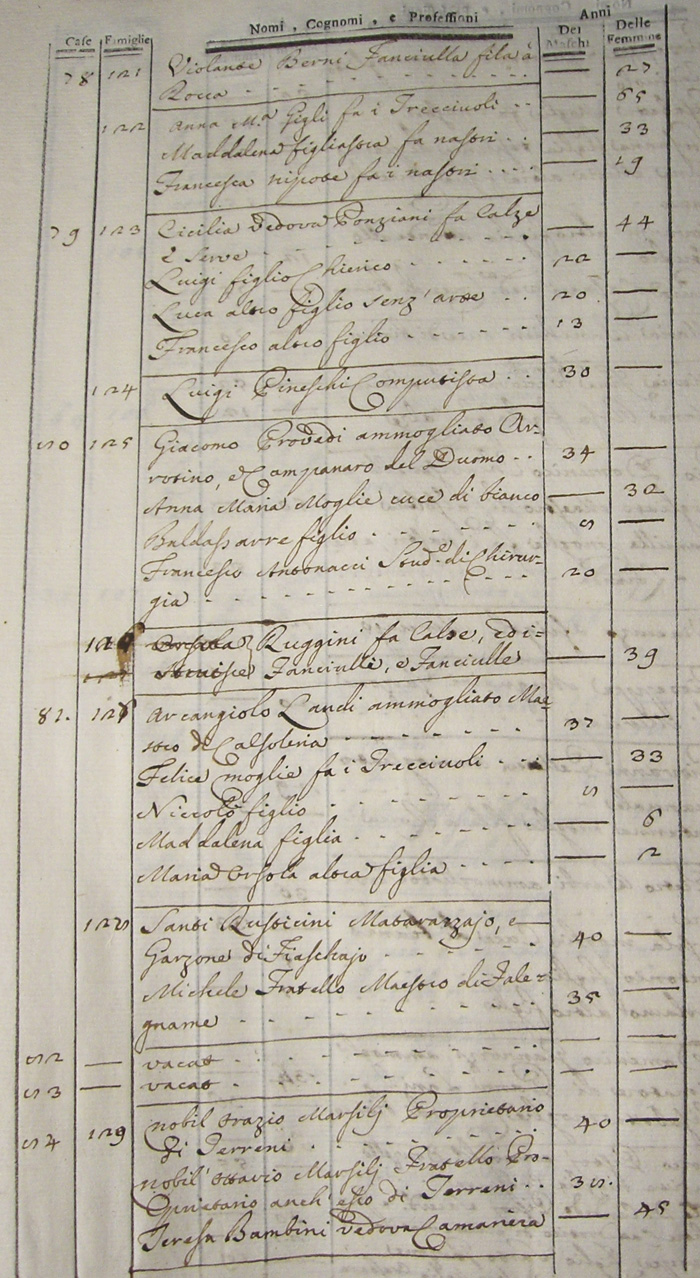 Case Famiglie Nomi, Cognomi, e Professioni Anni Dei Maschi Delle Femmine
78 121 Violante Berni Fanciulla fila à — 27
Rocca
122 Anna M.a Gigli fa i Trecciuoli — 65
Maddalena figliastra fa nastri — 33
Francesca nipote fa i nastri — 19
79 123 Cicilia Vedova Ponziani fa Calze — 44
e Serve
Luigi figlio Chierico 22 —
Luca altro figlio senz'arte 20 —
Francesco altro figlio 13 —
124 Luigi Pineschi Computista 30 —
80 125 Giacomo Provedi ammogliato Ar-
rotino, e Campanaro del Duomo 34 —
Anna Maria Moglie cuce di bianco — 32
Baldassarre figlio 8 —
Francesco Antonacci Stud.e di Chirur-
gia 20 —
126 Orsola Ruggini fa Calze, ed i=
struisce Fanciulli, e Fanciulle — 39
81. 127 Arcangiolo Landi ammogliato Mae
stro di Calsoleria 37 —
Felice moglie fa i Trecciuoli — 33
Niccolò figlio 8 —
Maddalena figlia — 6
Maria Orsola altra figlia — 2
128 Santi Rusticini Matarazzajo, e
Garzone di Fiaschajo 40 —
Michele Fratello Maestro di Fale=
gname 35 —
82 — vacat — —
83 — vacat — —
84 129 nobil Orazio Marsilj Proprietario 40 —
di Terreni
nobil' Ottavio Marsilj Fratello Pro-
prietario anch'esso di Terreni 38. —
Teresa Bambini Vedova Camariera — 45